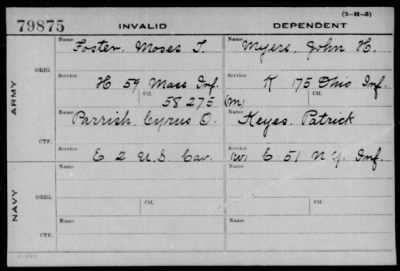 (3-H-3)
79875 INVALID DEPENDENT
Name Name
Foster, Moses T. Myers, John H.
ORIG.
Service Service
H 59 Mass Inf. K 175 Ohio Inf.
Ctf. Ctf.
ARMY
58275 (M)
Name Name
Parrish, Cyrus O. Keyes, Patrick
CTF.
Service Service
E 2 U.S. Cav. (W) C 51 N.Y. Inf.
Name Name
ORIG.
Ctf. Ctf.
NAVY
Name Name
CTF.